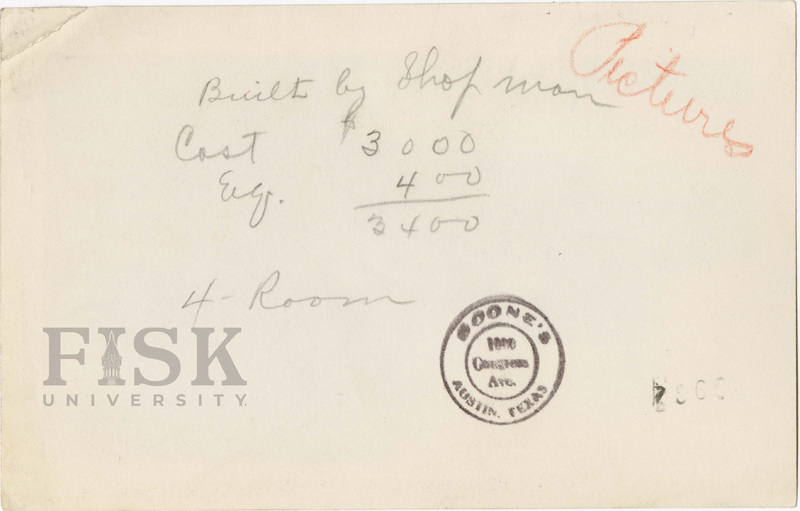 Pictures
Built by Shop man
Cost $3000
Eq. 400
3400
4-Room
FISK
UNIVERSITY
BOONE'S
1006
Congress
Ave.
AUSTIN, TEXAS